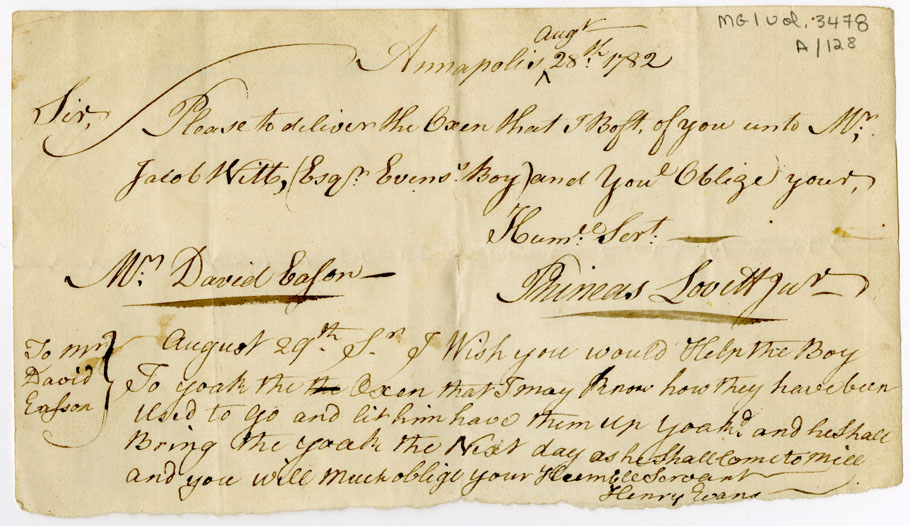 MG1 Vol. 3478
A/128
Annapolis Augt 28th. 1782
Sir,
Please to deliver the Oxen that I Boft. of you unto Mr.
Jacob Witt, (Esqr. Evens's Boy) and You'l Oblige your,
Humle Sert.
Mr. David Eason
Phineas Lovitt Jur
To mr
David
Easson
August 29th. Sr I Wish you would Help the Boy
To yoak the the Oxen that I may Know how they have been
Used to go and lit him have them up yoakd. and he shall
Bring the yoak the Next day as he shall Come to mill
and you will much oblige your Humble Servant
Henry Evans